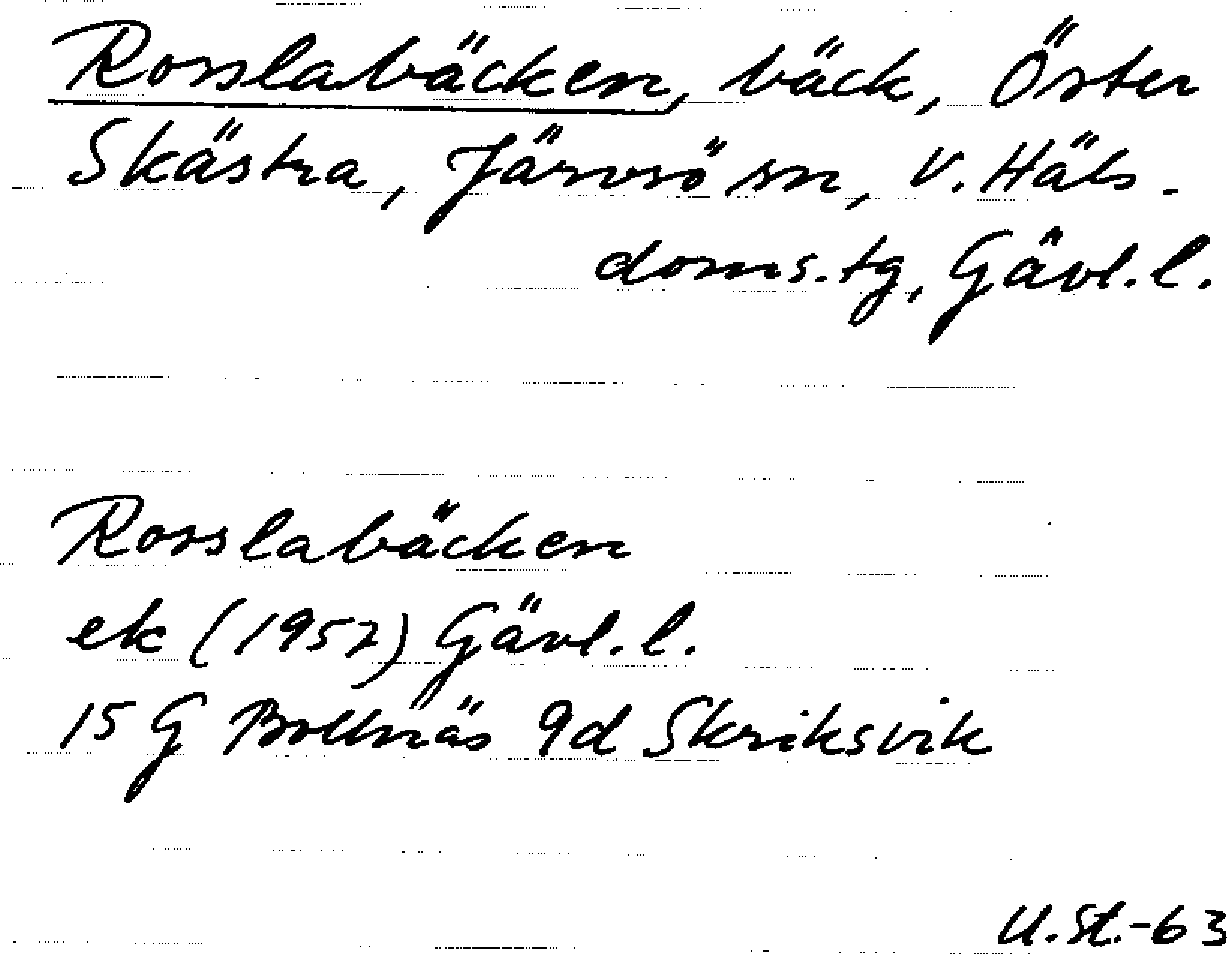 Rosslabäcken, bäck, Öster
Skästra, Järvsö sn, V. Häls.
doms.tg, Gävl.l.
Rosslabäcken
ek (1957) Gävl.l.
15 G Bollnäs 9d Skriksvik
U.St.-63